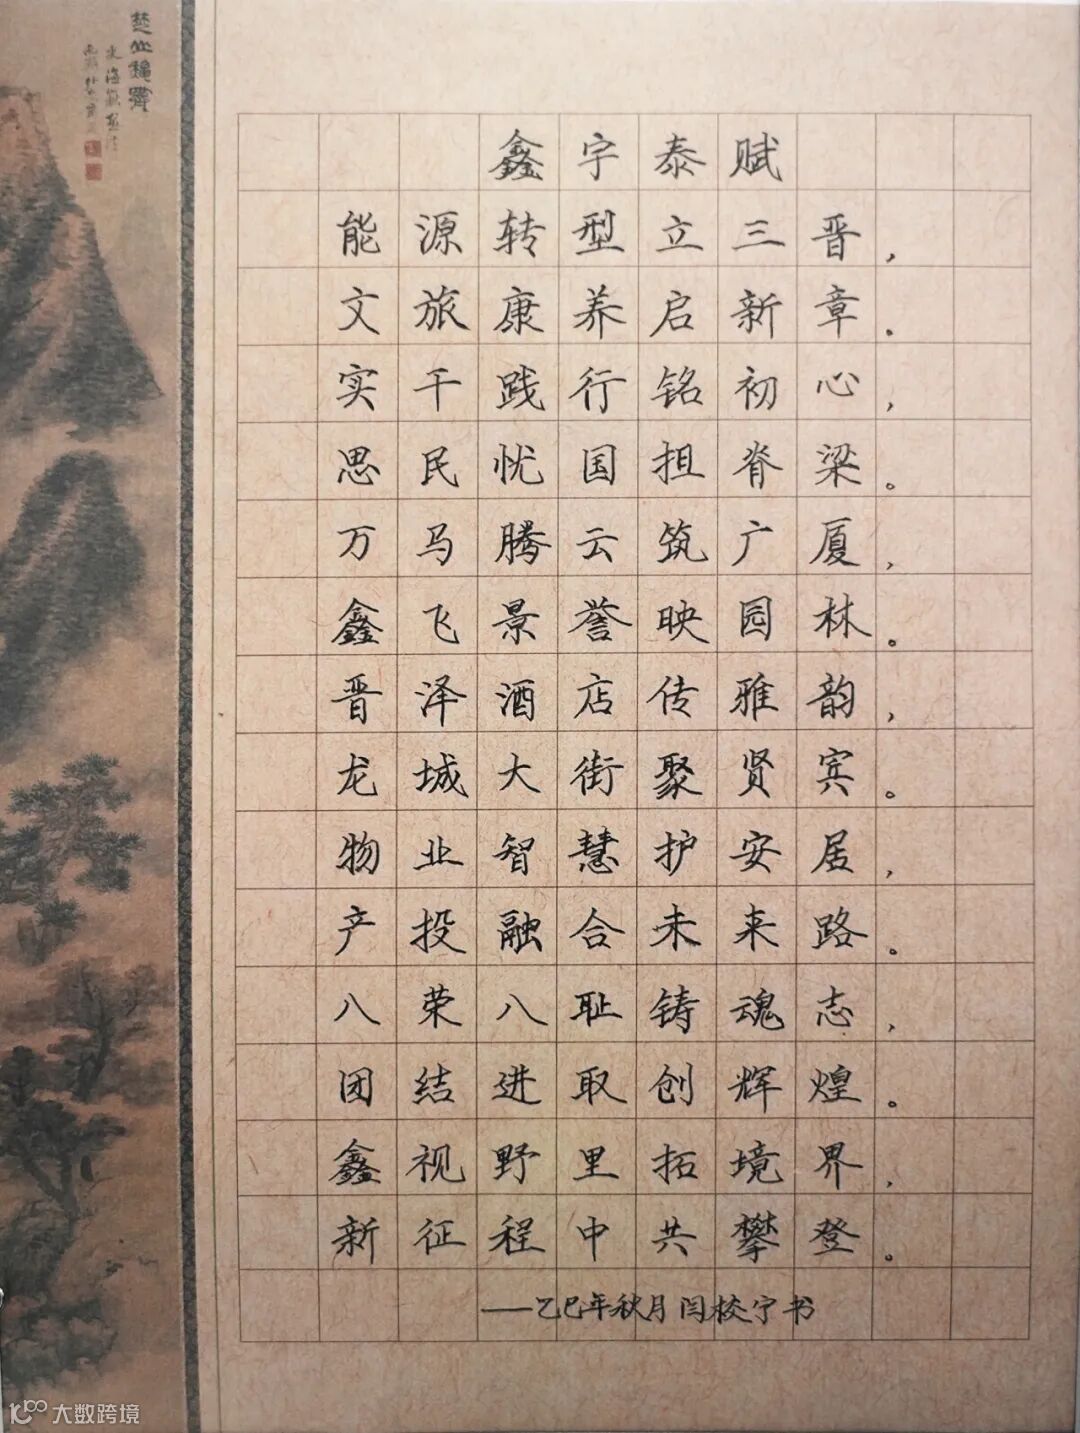 鑫宇泰赋
能源转型立三晋，
文旅康养启新章。
实干践行铭初心，
思民忧国担脊梁。
万马腾云筑广厦，
鑫飞景誉映园林。
晋泽酒店传雅韵，
龙城大街聚贤宾。
物业智慧护安居，
产投融合未来路。
八荣八耻铸魂志，
团结进取创辉煌。
鑫视野里拓境界，
新征程中共攀登。
——乙巳年秋月闫校宁书
大数跨境